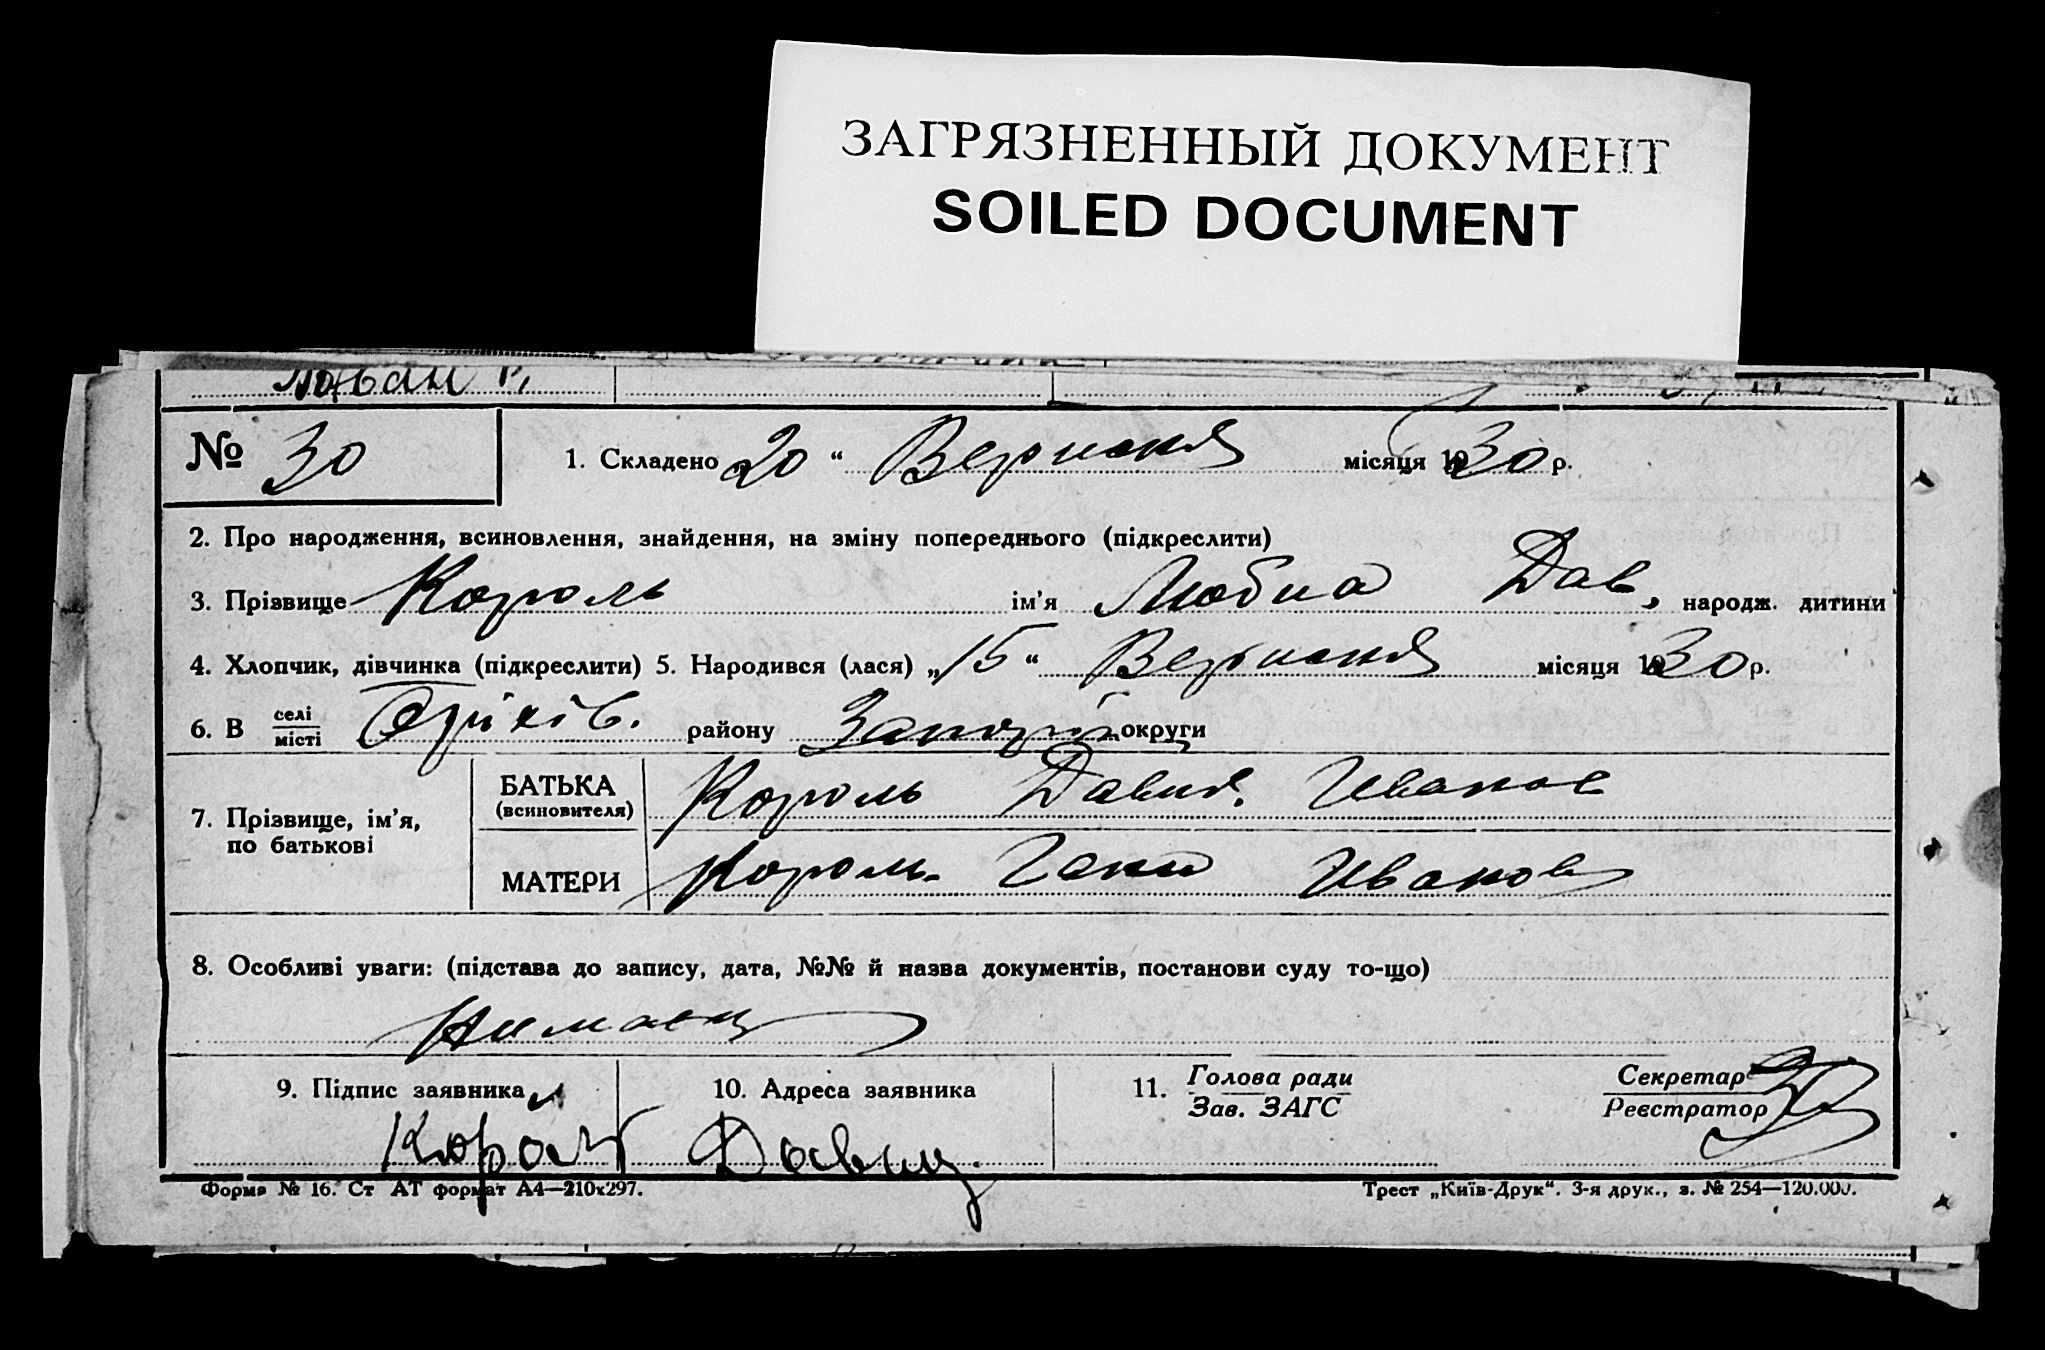 ЗАГРЯЗНЕННЫЙ ДОКУМЕНТ
SOILED DOCUMENT
№ 30 1. Складено „20“ Вересня місяця 1930 р.
2. Про народження, всиновлення, знайдення, на зміну попереднього (підкреслити)
3. Прізвище Король ім'я Любна Дав. народж. дитини
4. Хлопчик, дівчинка (підкреслити) 5. Народився (лася) „15“ Вересня місяця 1930 р.
6. В селі місті Оріхів. району Запоріж округи
7. Прізвище, ім'я, по батькові
БАТЬКА (всиновителя) Король Давид. Иванов
МАТЕРИ Король Ганна Иванов
8. Особливі уваги: (підстава до запису, дата, №№ й назва документів, постанови суду то-що)
Нимаец
9. Підпис заявника 10. Адреса заявника 11. Голова ради Зав. ЗАГС Секретар Реєстратор
Король Давид
Форма № 16. Ст АТ формат А4—210х297. Трест „Київ-Друк“. 3-я друк., з. № 254—120.000.